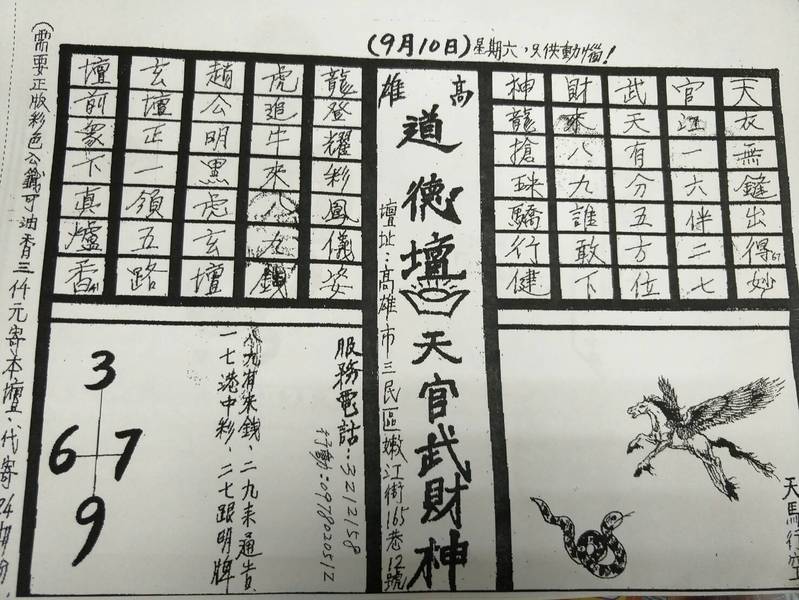 (9月10日)星期六，只供動惱！
天衣無縫出得妙
官江一六伴二七
武天有分五方位
財來八九誰敢下
神龍搶珠驕行健
高雄
道德壇
天官武財神
壇址：高雄市三民區嫩江街165巷12號
龍登耀彩鳳儀姿
虎追牛來八九鎖
趙公明黑虎玄壇
玄壇正一領五路
壇前象下真爐香
服務電話：3212158
行動：0978020512
八九有來錢、二九來通告
一七港中彩、二七跟明牌
3
6 7
9
天馬行空
(需要正版彩色公籤可油香三仟元寄本壇、代寄24期份